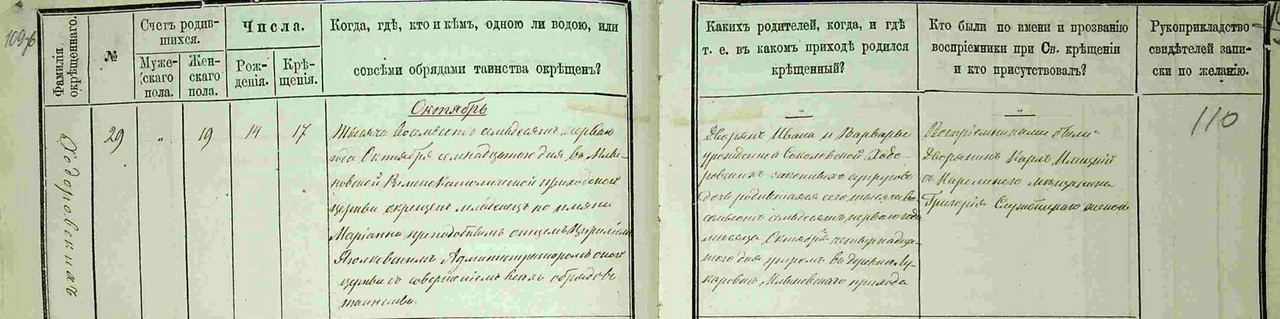 109 об
Фамилія окрѣщеннаго.
№
Счетъ родив-
шихся.
Муже-
скаго
пола.
Жен-
скаго
пола.
Числа.
Рож-
денія.
Крѣ-
щенія.
Когда, гдѣ, кто и кѣмъ, одною ли водою, или
совсѣми обрядами таинства окрѣщенъ?
Какихъ родителей, когда, и гдѣ
т. е. въ какомъ приходѣ родился
крѣщенный?
Кто были по имени и прозванію
воспріемники при Св. крѣщеніи
и кто присутствовалъ?
Рукоприкладство
свидѣтелей запи-
ски по желанію.
29
„
19
14
17
Октябрь
Тысяча восемьсотъ семьдесятъ перваго
года Октября семнадцатого дня въ
Римскокатолической приходской
церкви окрещенъ младенецъ по имени
Маріанна преподобнымъ отцемъ
Администраторомъ оной
церкви съ совершеніемъ всехъ обрядовъ
таинства.
„
Дворянъ Ивана и Варвары
урожденной Соколовской Ходо-
ровскихъ законныхъ супруговъ
дочь родившаяся сего тысяча во-
семьсотъ семьдесятъ перваго года
месяца Октября четырнадца-
того дня утромъ въ деревни
прихода
„
Воспріемниками были
Дворянинъ Карлъ
съ
Григорія женою
110